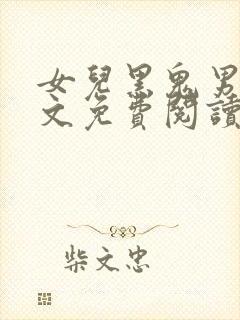 女兒黑鬼男
文免費閱讀
柴文忠